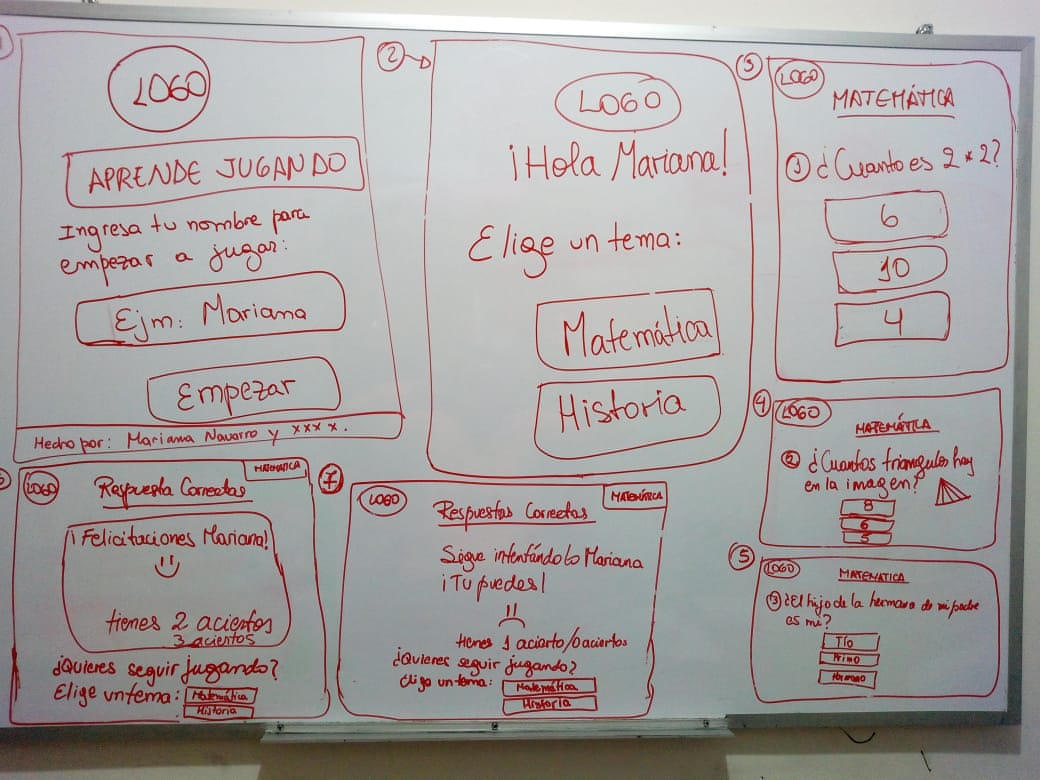 1
LOGO
APRENDE JUGANDO
Ingresa tu nombre para
empezar a jugar:
Ejm: Mariana
Empezar
Hecho por: Mariana Navarro y xxxx.
2
LOGO
¡Hola Mariana!
Elige un tema:
Matemática
Historia
3
LOGO
MATEMÁTICA
1 ¿Cuanto es 2 x 2?
6
10
4
4
LOGO
MATEMÁTICA
2 ¿Cuantos triangulos hay
en la imagen?
8
6
5
5
LOGO
MATEMATICA
3 ¿El hijo de la hermana de mi padre
es mi?
Tío
Primo
Hermano
LOGO
MATEMATICA
Respuesta Correctas
¡Felicitaciones Mariana!
tienes 2 aciertos
3 aciertos
¿Quieres seguir jugando?
Elige un tema: Matemática
Historia
7
LOGO
MATEMÁTICA
Respuestas Correctas
Sigue intentándolo Mariana
¡Tu puedes!
tienes 1 acierto/0 aciertos
¿Quieres seguir jugando?
Elige un tema: Matemática
Historia